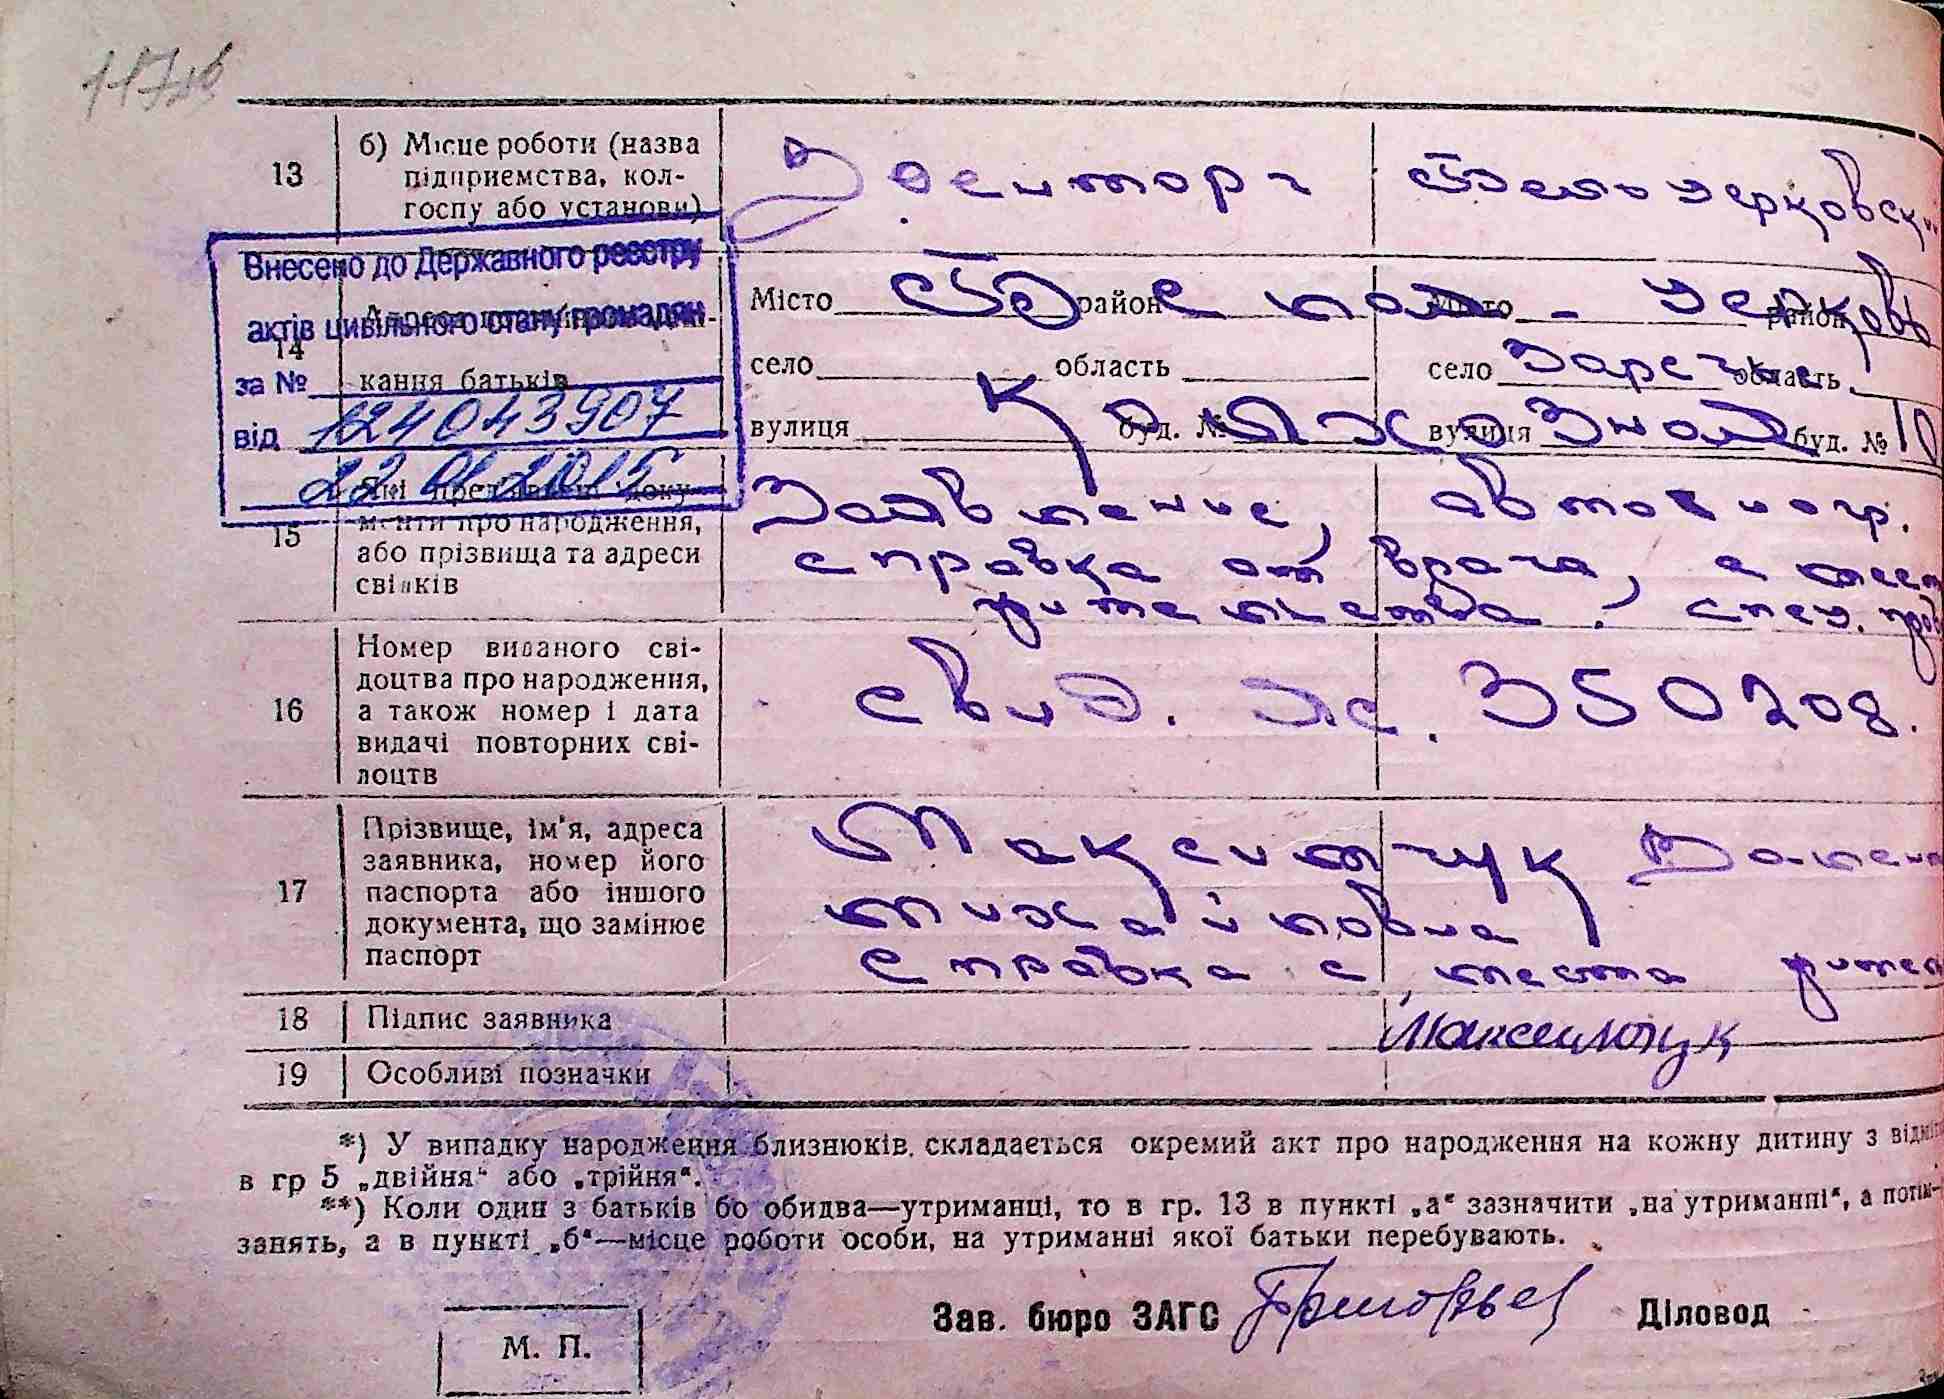 13 б) Місце роботи (назва підприємства, колгоспу або установи) Военторг Белоцерковский
Внесено до Державного реєстру
актів цивільного стану громадян
за № 124043907
від 22.01.2015
14
кання батьків
Місто Белая - Церковь район Місто район
село область село Заречье область
вулиця буд. № вулиця буд. № 10
15 Які пред'явлені документи про народження, або прізвища та адреси свідків
Заявление, автобиогр.
справка от врача, с мест
жительства. спец. пров
16 Номер виданого свідоцтва про народження, а також номер і дата видачі повторних свідоцтв
свид. Яс. 350208.
17 Прізвище, ім'я, адреса заявника, номер його паспорта або іншого документа, що замінює паспорт
Максимчук Вален
михайловна
справка с места жител
18 Підпис заявника Максимчук
19 Особливі позначки
*) У випадку народження близнюків, складається окремий акт про народження на кожну дитину з відміт
в гр 5 „двійня“ або „трійня“.
**) Коли один з батьків бо обидва—утриманці, то в гр. 13 в пункті „а“ зазначити „на утриманні“, а потім—
занять, а в пункті „б“—місце роботи особи, на утриманні якої батьки перебувають.
Зав. бюро ЗАГС Григорьев Діловод
М. П.